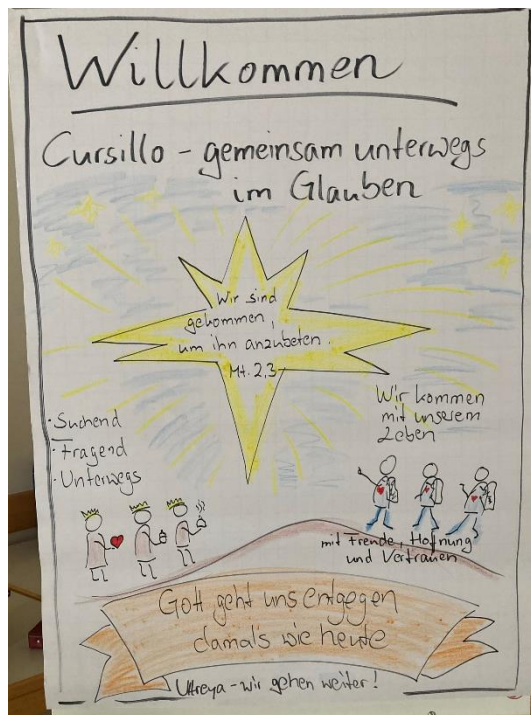 Willkommen
Cursillo - gemeinsam unterwegs
im Glauben
Wir sind
gekommen,
um ihn anzubeten.
Mt. 2,3
Wir kommen
mit unserem
Leben
· Suchend
· Fragend
· Unterwegs
mit Freude, Hoffnung
und Vertrauen
Gott geht uns entgegen
damals wie heute
Ultreya - wir gehen weiter!